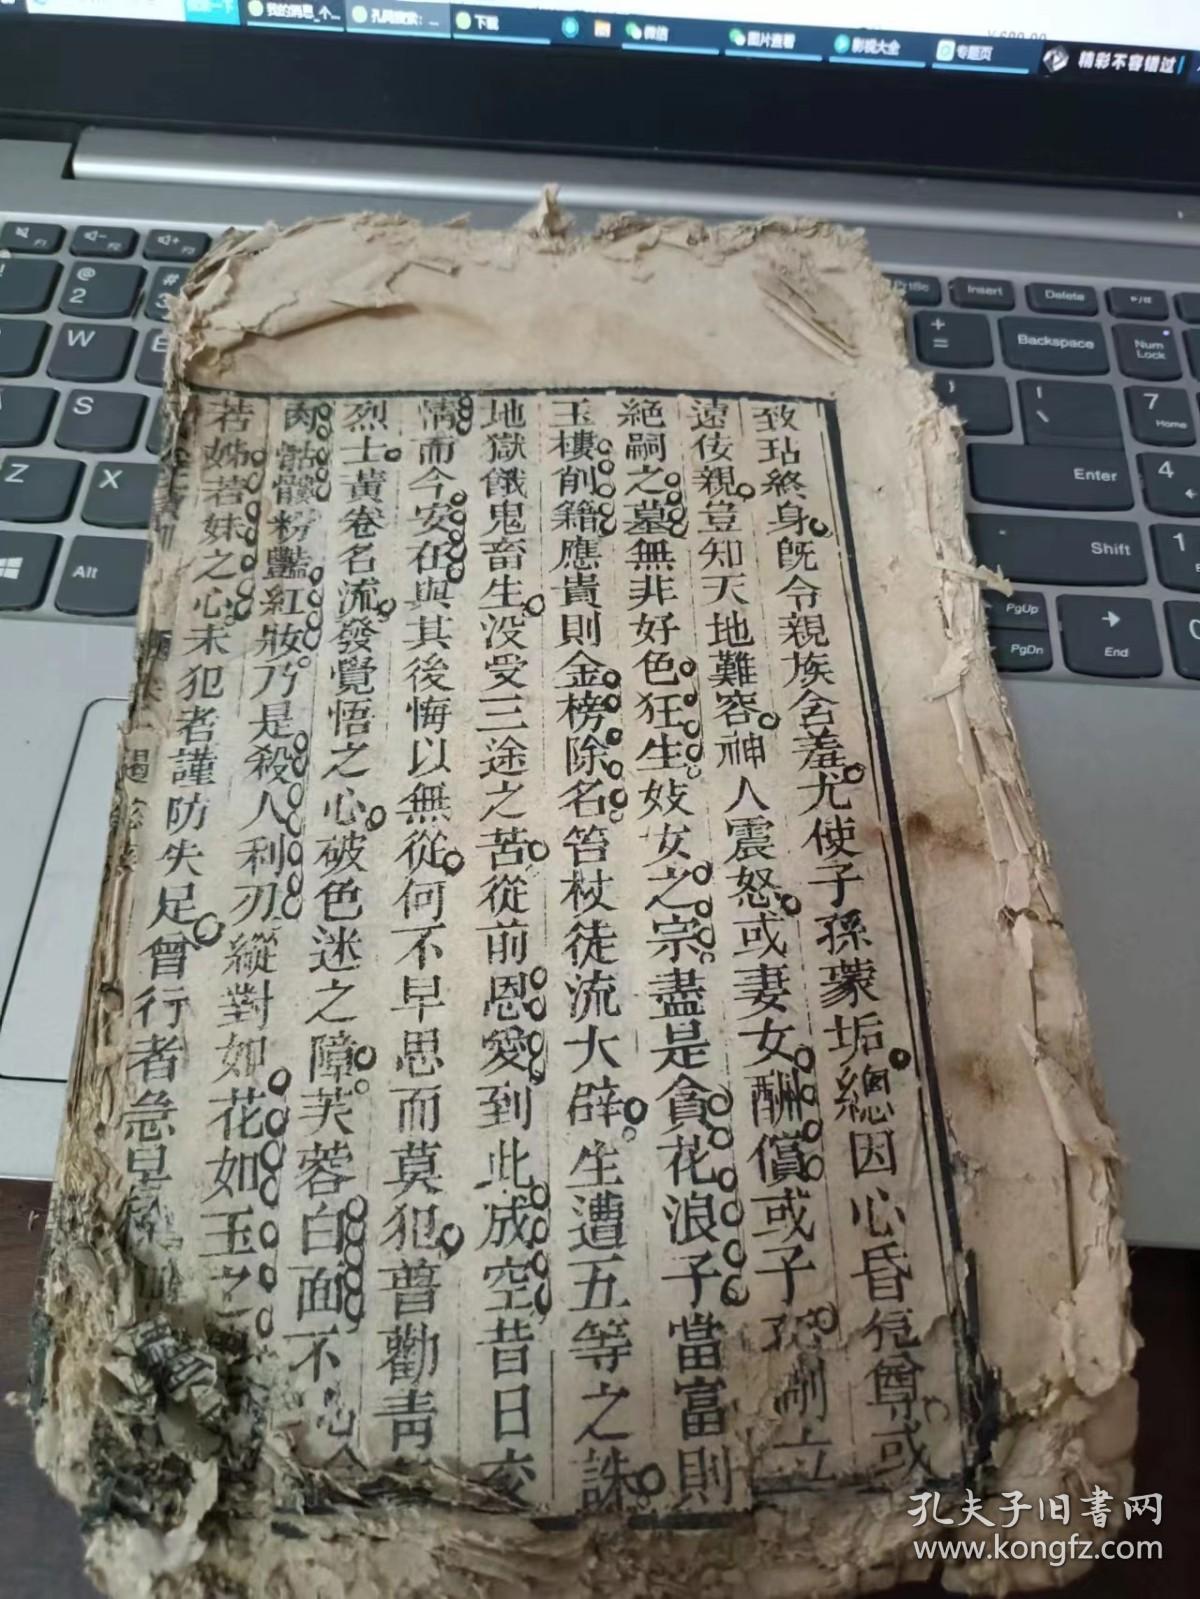 我的消息_个...
下载
微信
图片查看
影视大全
专题页
精彩不容错过
致玷終身既令親族含羞尤使子孫蒙垢總因心昏
尊或
遠伎親豈知天地難容神人震怒或妻女酬償或子
絕嗣之墓無非好色狂生妓女之宗盡是貪花浪子當富則
玉樓削籍應貴則金榜除名笞杖徒流大辟生遭五等之誅
地獄餓鬼畜生没受三途之苦從前恩愛到此成空昔日
情而今安在與其後悔以無從何不早思而莫犯普勸青
烈士黃卷名流發覺悟之心破色迷之障芙蓉白面不
肉骷髏粉豔紅妝乃是殺人利刃縱對如花如玉之
若姊若妹之心未犯者謹防失足曾行者急早
F1
F2
F3
Insert
Delete
Backspace
Num
Lock
@
2
#
3
W
E
A
S
Z
X
Alt
7
Home
4
Enter
1
Shift
PgUp
PgDn
End
孔夫子旧书网
www.kongfz.com